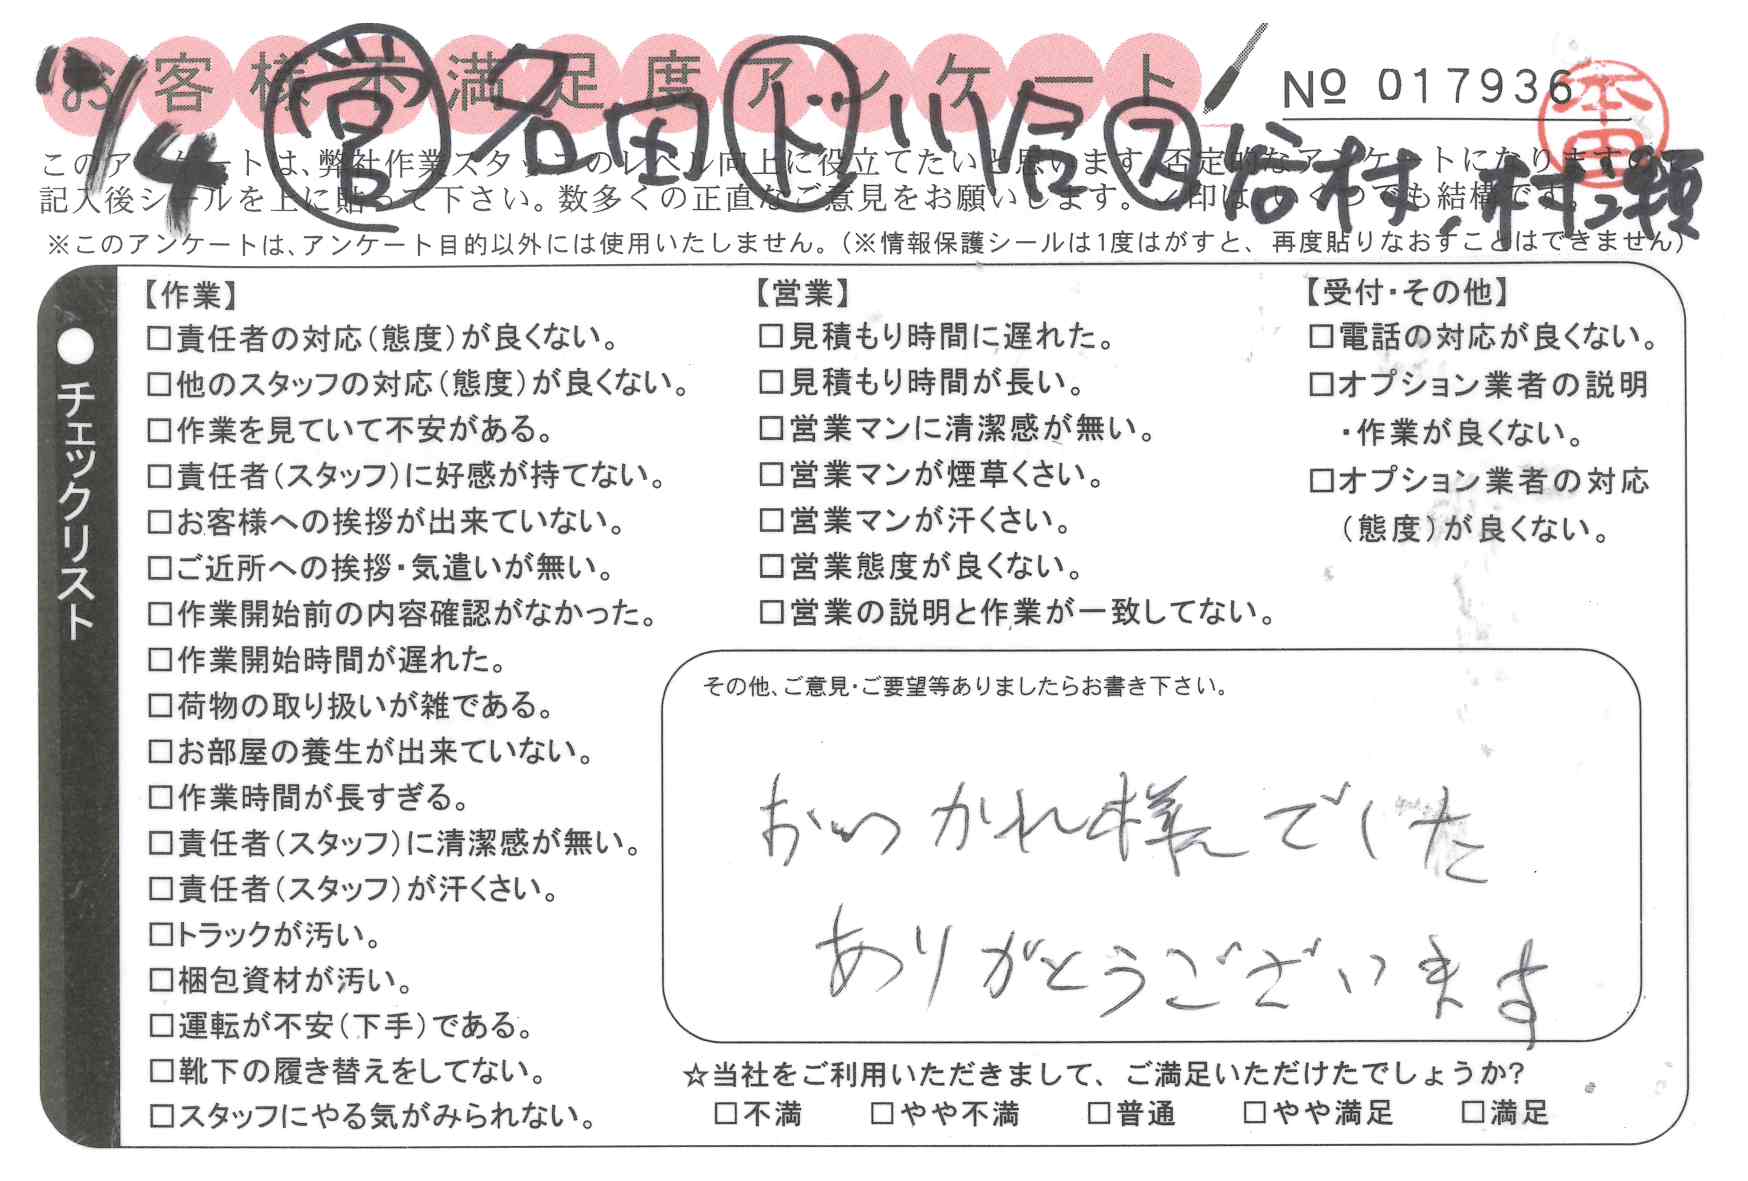 お客様不満足度アンケート
No 017936
本田
7/4 営 名田 ド 川合 ス 谷村、村瀬
このアンケートは、弊社作業スタッフのレベル向上に役立てたいと思います。否定的なアンケートになりますので、
記入後シールを上に貼って下さい。数多くの正直なご意見をお願いします。✓印は、いくつでも結構です。
※このアンケートは、アンケート目的以外には使用いたしません。(※情報保護シールは1度はがすと、再度貼りなおすことはできません)
●チェックリスト
【作業】
□責任者の対応(態度)が良くない。
□他のスタッフの対応(態度)が良くない。
□作業を見ていて不安がある。
□責任者(スタッフ)に好感が持てない。
□お客様への挨拶が出来ていない。
□ご近所への挨拶・気遣いが無い。
□作業開始前の内容確認がなかった。
□作業開始時間が遅れた。
□荷物の取り扱いが雑である。
□お部屋の養生が出来ていない。
□作業時間が長すぎる。
□責任者(スタッフ)に清潔感が無い。
□責任者(スタッフ)が汗くさい。
□トラックが汚い。
□梱包資材が汚い。
□運転が不安(下手)である。
□靴下の履き替えをしてない。
□スタッフにやる気がみられない。
【営業】
□見積もり時間に遅れた。
□見積もり時間が長い。
□営業マンに清潔感が無い。
□営業マンが煙草くさい。
□営業マンが汗くさい。
□営業態度が良くない。
□営業の説明と作業が一致してない。
【受付・その他】
□電話の対応が良くない。
□オプション業者の説明
・作業が良くない。
□オプション業者の対応
(態度)が良くない。
その他、ご意見・ご要望等ありましたらお書き下さい。
おつかれ様でした
ありがとうございます
☆当社をご利用いただきまして、ご満足いただけたでしょうか?
□不満 □やや不満 □普通 □やや満足 □満足